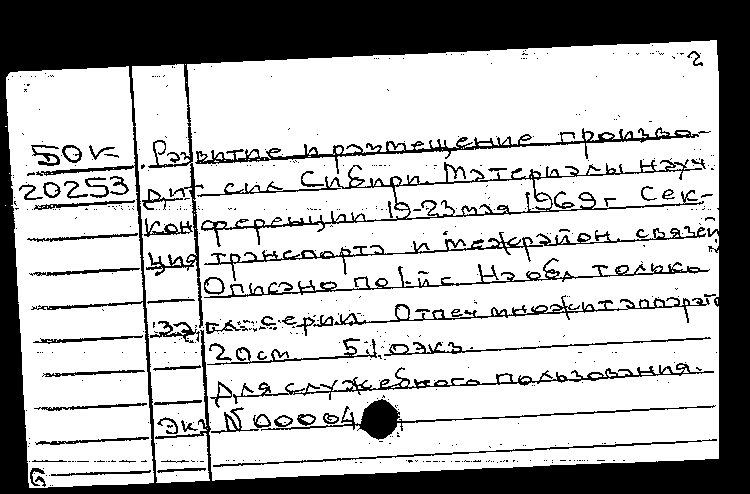 2
БОК Развитие и размещение произво-
20253 дит сил Сибири. Материалы науч.
конференции 19-23 мая 1969 г Сек-
ция транспорта и межрайон. связей
Описано по 1-й с. На обл только
загл. серии. Отпеч множит аппарато
20 см. 510 экз.
Для служебного пользования.
Экз N 00004